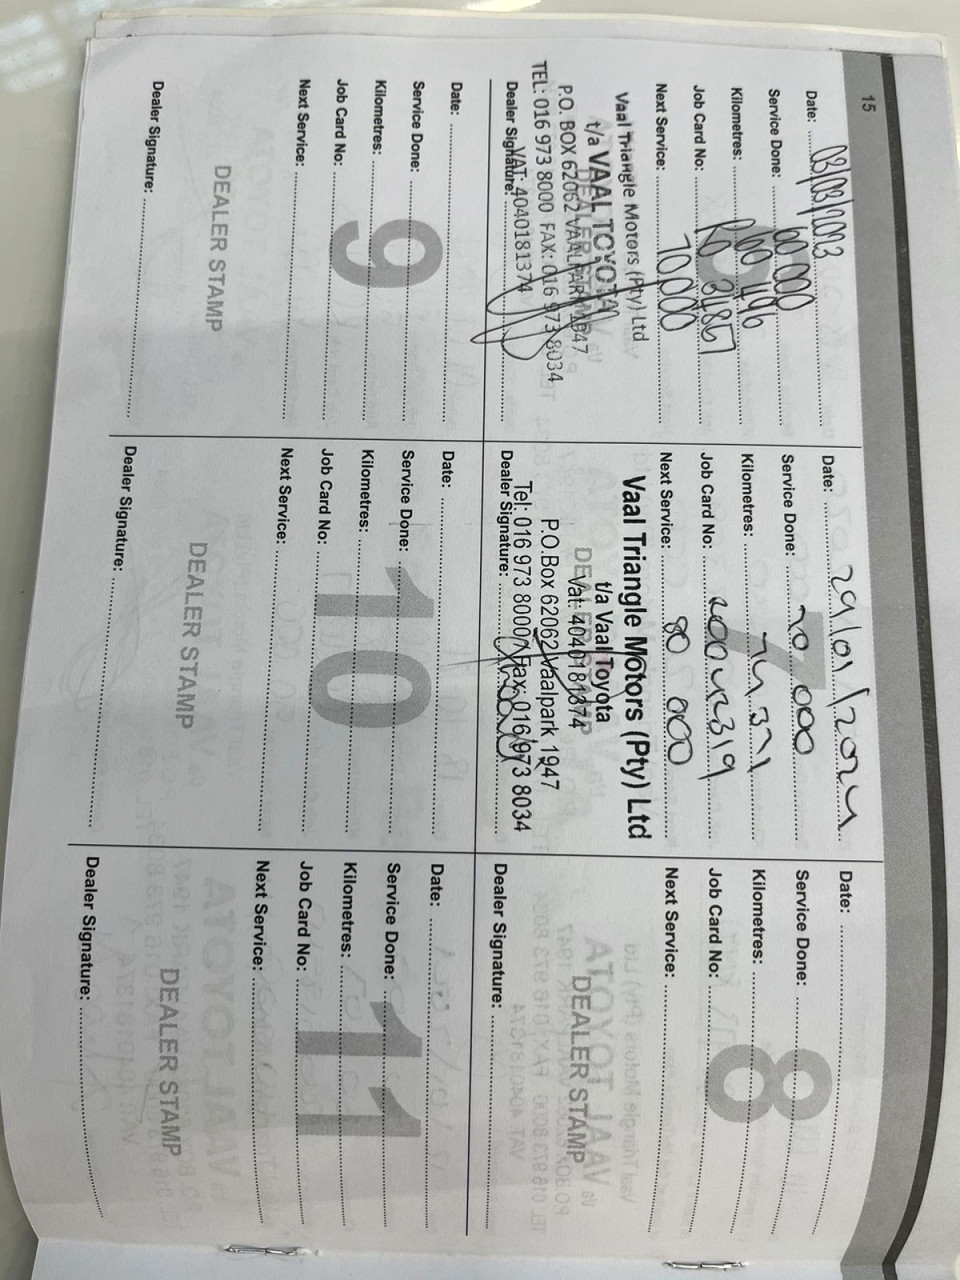 15
Date: 03/03/2023
Service Done: 60 000
Kilometres: 60 496
Job Card No:
Next Service: 70 000
6
Vaal Triangle Motors (Pty) Ltd
t/a VAAL TOYOTA
DEALER STAMP
P.O. BOX 62062 VAALPARK 1947
TEL: 016 973 8000 FAX: 016 973 8034
VAT: 4040181374
Dealer Signature:
Date: 29/01/2024
Service Done: 70 000
Kilometres: 74 331
Job Card No:
Next Service: 80 000
7
Vaal Triangle Motors (Pty) Ltd
t/a Vaal Toyota
DEALER STAMP
Vat: 4040181374
P.O.Box 62062 Vaalpark 1947
Tel: 016 973 8000 Fax: 016 973 8034
Dealer Signature:
Date:
Service Done:
Kilometres:
Job Card No:
Next Service:
8
DEALER STAMP
Dealer Signature:
Date:
Service Done:
Kilometres:
Job Card No:
Next Service:
9
DEALER STAMP
Dealer Signature:
Date:
Service Done:
Kilometres:
Job Card No:
Next Service:
10
DEALER STAMP
Dealer Signature:
Date:
Service Done:
Kilometres:
Job Card No:
Next Service:
11
DEALER STAMP
Dealer Signature: